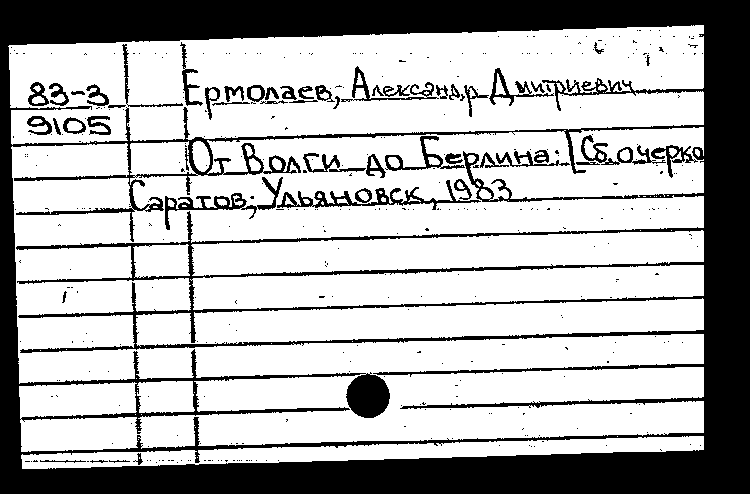 83-3 Ермолаев, Александр Дмитриевич
9105
От Волги до Берлина: [Сб. очерко
Саратов; Ульяновск, 1983